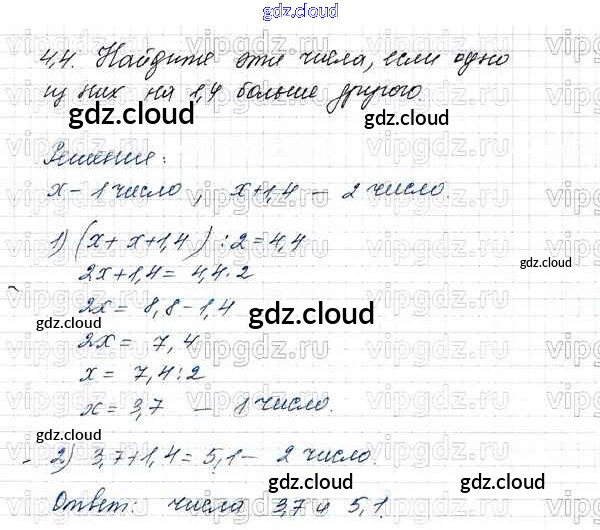 gdz.cloud
4,4. Найдите эти числа, если одно
из них на 1,4 больше другого.
gdz.cloud gdz.cloud
Решение:
x - 1 число, x+1,4 - 2 число.
1) (x + x+1,4) : 2 = 4,4
2x+1,4 = 4,4·2
gdz.cloud
2x = 8,8-1,4
gdz.cloud gdz.cloud
2x = 7,4
x = 7,4:2
x = 3,7 - 1 число.
gdz.cloud
2) 3,7+1,4 = 5,1 - 2 число.
gdz.cloud gdz.cloud
Ответ: числа 3,7 и 5,1.
vipgdz.ru